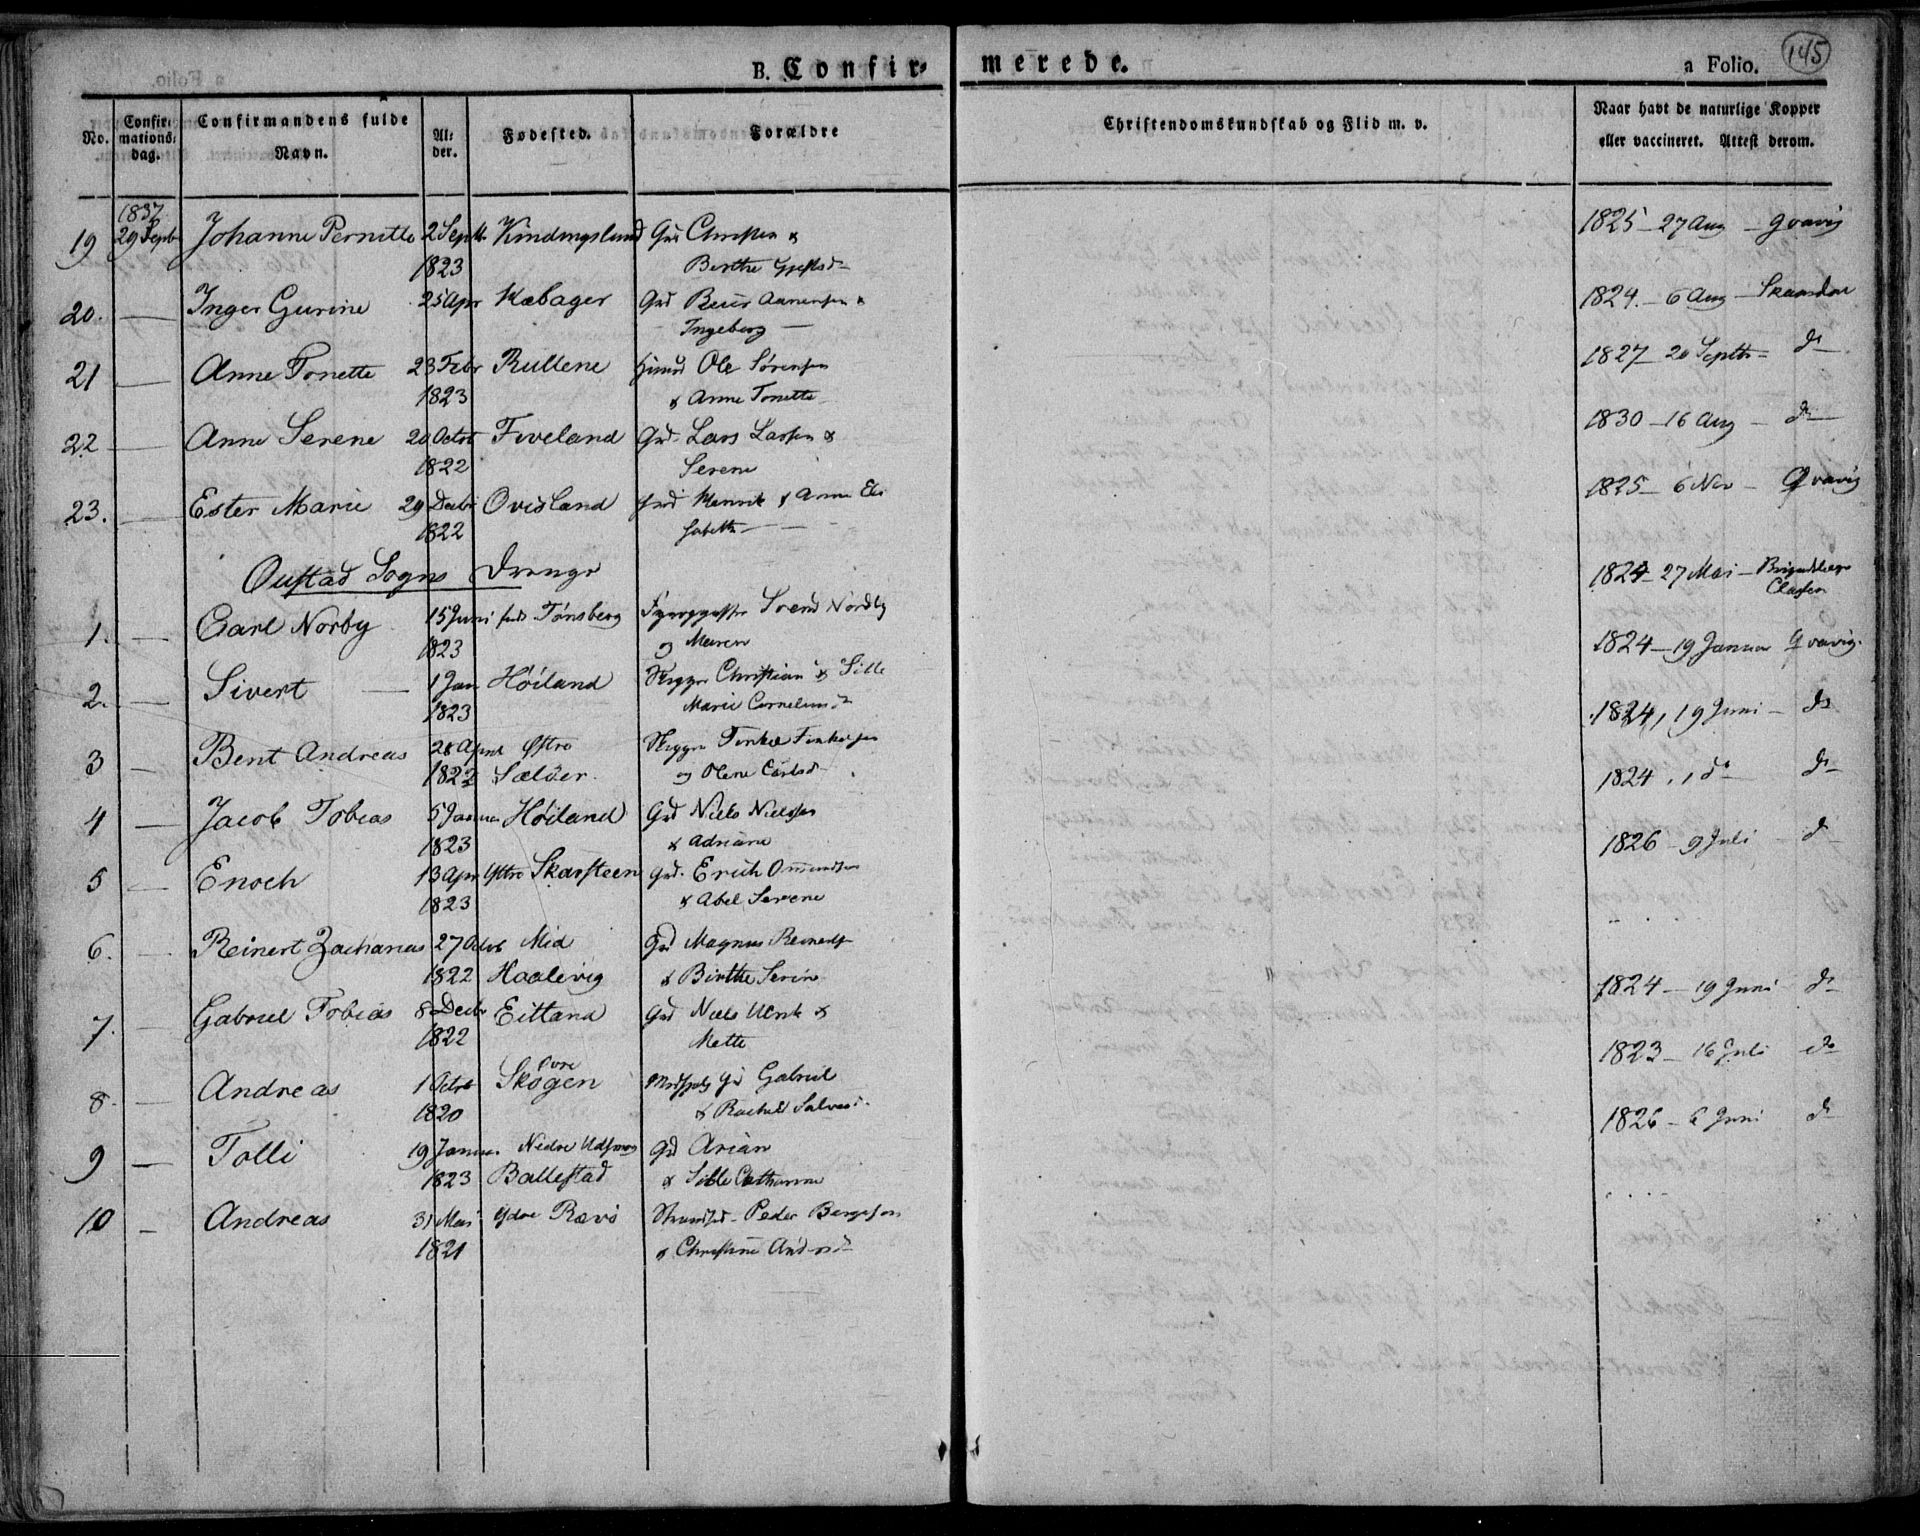 B. Confir- merede. a Folio. 145
No. Confirmationsdag. Confirmandens fulde Navn. Alder. Fødested. Forældre Christendomskundskab og Flid m. v. Naar havt de naturlige Kopper eller vaccineret. Attest derom.
1837
19 29 Septb Johanne Pernitte 2 Septb Gd Christen & 1825 - 27 Aug - Qvavig
1823 Berthe
20. — Inger Gurine 25 Apr Kæbager Gd Aanensen & 1824 - 6 Aug -
Ingeborg —
21 — Anne Tonette 23 Febr Rullene Huusd Ole Sørensen 1827 - 20 Septb - do
1823 & Anne Tonette
22 — Anne Serene 20 Octob Fiveland Gd Lars Larsen & 1830 - 16 Aug - do
1822 Serene
23. — Ester Marie 29 Decbr Ovisland Gd Henrik & Anne Eli 1825 - 6 Nov - Qvavig
1822 sabeth —
Oustad Sogns Drenge
1. — Carl Norby 15 Juni Tønsberg Svend Nordby 1824 - 27 Mai - Clasen
1823 og Maren
2. — Sivert — 1 Jan Høiland Skipper Christian & Sille 1824 - 19 Januar Qvavig.
1823 Marie
3 — Bent Andreas 28 April Østre Skipper 1824, 19 Juni - do
1822 Sælöer. og Olene Carlsd
4 — Jacob Tobias 5 Januar Høiland Gd Niels Nielsen 1824, 1 do do
1823 & Adriane
5 — Enoch 13 Apr Østre Skarsteen Gd. Erich Omundsen 1826 - 9 Juli - do
1823 & Abel Serene
6. — Reinert Zacharias 27 Octob Mid Gd Magnus . . . .
1822 Haalevig & Birthe Serine
7. — Gabriel Tobias 8 Decbr Eitland Gd Niels Ulrik & 1824 - 19 Juni - do
1822 Mette
8. — Andreas 1 Octob Øvre Skogen Gd Gabriel 1823 - 16 Juli do
1820 & Rachel
9 — Tolli 19 Januar Nedre Gd Arian 1826 - 6 Juni do
1823 Ballestad & Sille Cathrine
10 — Andreas 31 Mai Ydre Rævö Peder Bergeson . . . .
1821 & Christine